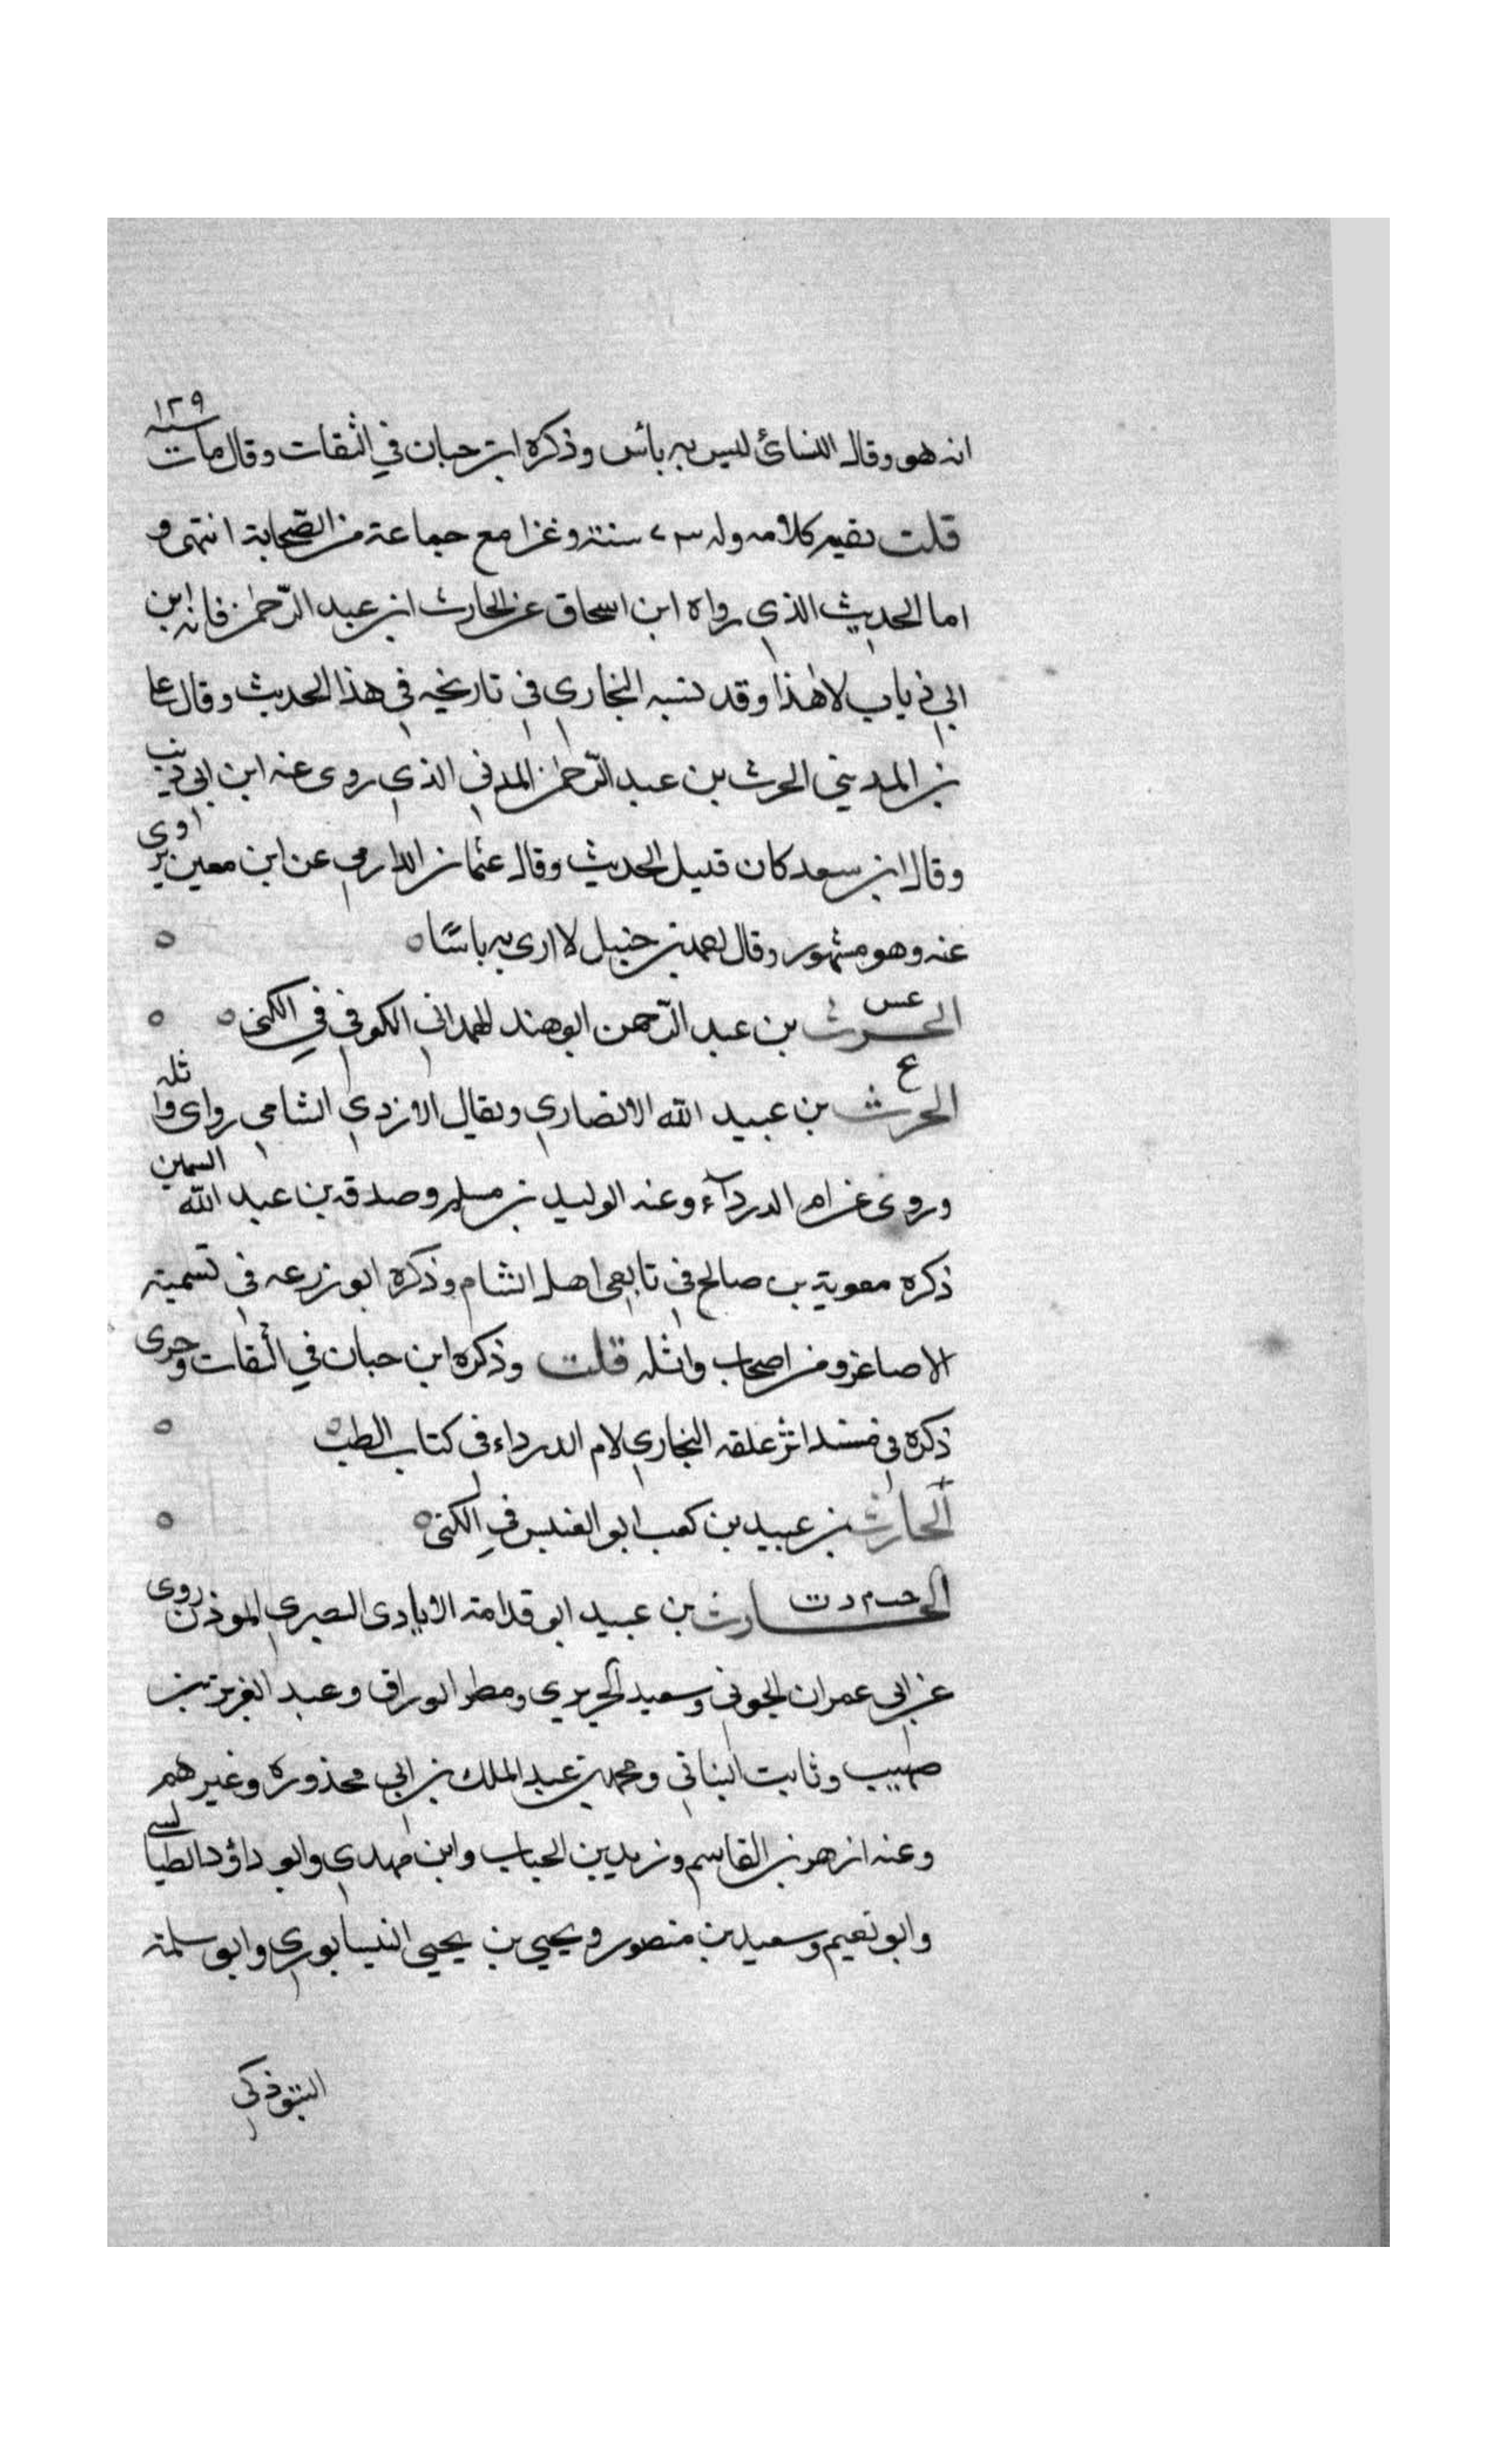 انه هو وقال النسائ ليس به بأس وذكره ابن حبان في الثقات وقال مات سنة ١٢٩
قلت بقيه كلامه وله ٧٣ سنة وغزا مع جماعة من الصّحابة انتهى و
اما الحديث الذي رواه ابن اسحاق عن الحارث ابن عبد الرّحمن فانه ابن
ابي ذياب لا هذا وقد نسبه البخاري في تاريخه في هذا الحديث وقال علي
بن المديني الحرث بن عبد الرّحمن المدني الذي روى عنه ابن ابي ذيب
وقال ابن سعد كان قليل الحديث وقال عثمان الدارمي عن ابن معين يروى
عنه وهو مشهور وقال احمد بن حنبل لا ارى به باسًا ٥ ٥
عس الحرث بن عبد الرّحمن ابو هند الهمداني الكوفي في الكنى ٥ ٥
ع الحرث بن عبيد الله الانصاري ويقال الازدي الشامي رواى واثله
وروى عن ام الدرداء وعنه الوليد بن مسلم وصدقه بن عبد الله السمين
ذكره معوية بن صالح في تابعي اهل الشام وذكره ابو زرعه في تسمية
الاصاغر ومن اصحاب واثله قلت وذكره ابن حبان في الثقات وجرى
ذكره في مسند اثر علقه البخاري لام الدرداء في كتاب الطب ٥ ٥
الحارث بن عبيد بن كعب ابو العنبس في الكنى ٥ ٥
خت م د ت الحارث بن عبيد ابو قدامة الايادى البصري الموذن روى
عن ابي عمران الجوني وسعيد الجريري ومطر الوراق وعبد العزيز بن
صهيب وثابت البناني ومحمد بن عبد الملك بن ابي محذوره وغيرهم
وعنه ازهر بن القاسم وزيد بن الحباب وابن مهدي وابو داؤد الطيالسي
وابو نعيم وسعيد بن منصور ويحيي بن يحيي النيسابوري وابو سلمة
التبوذكي